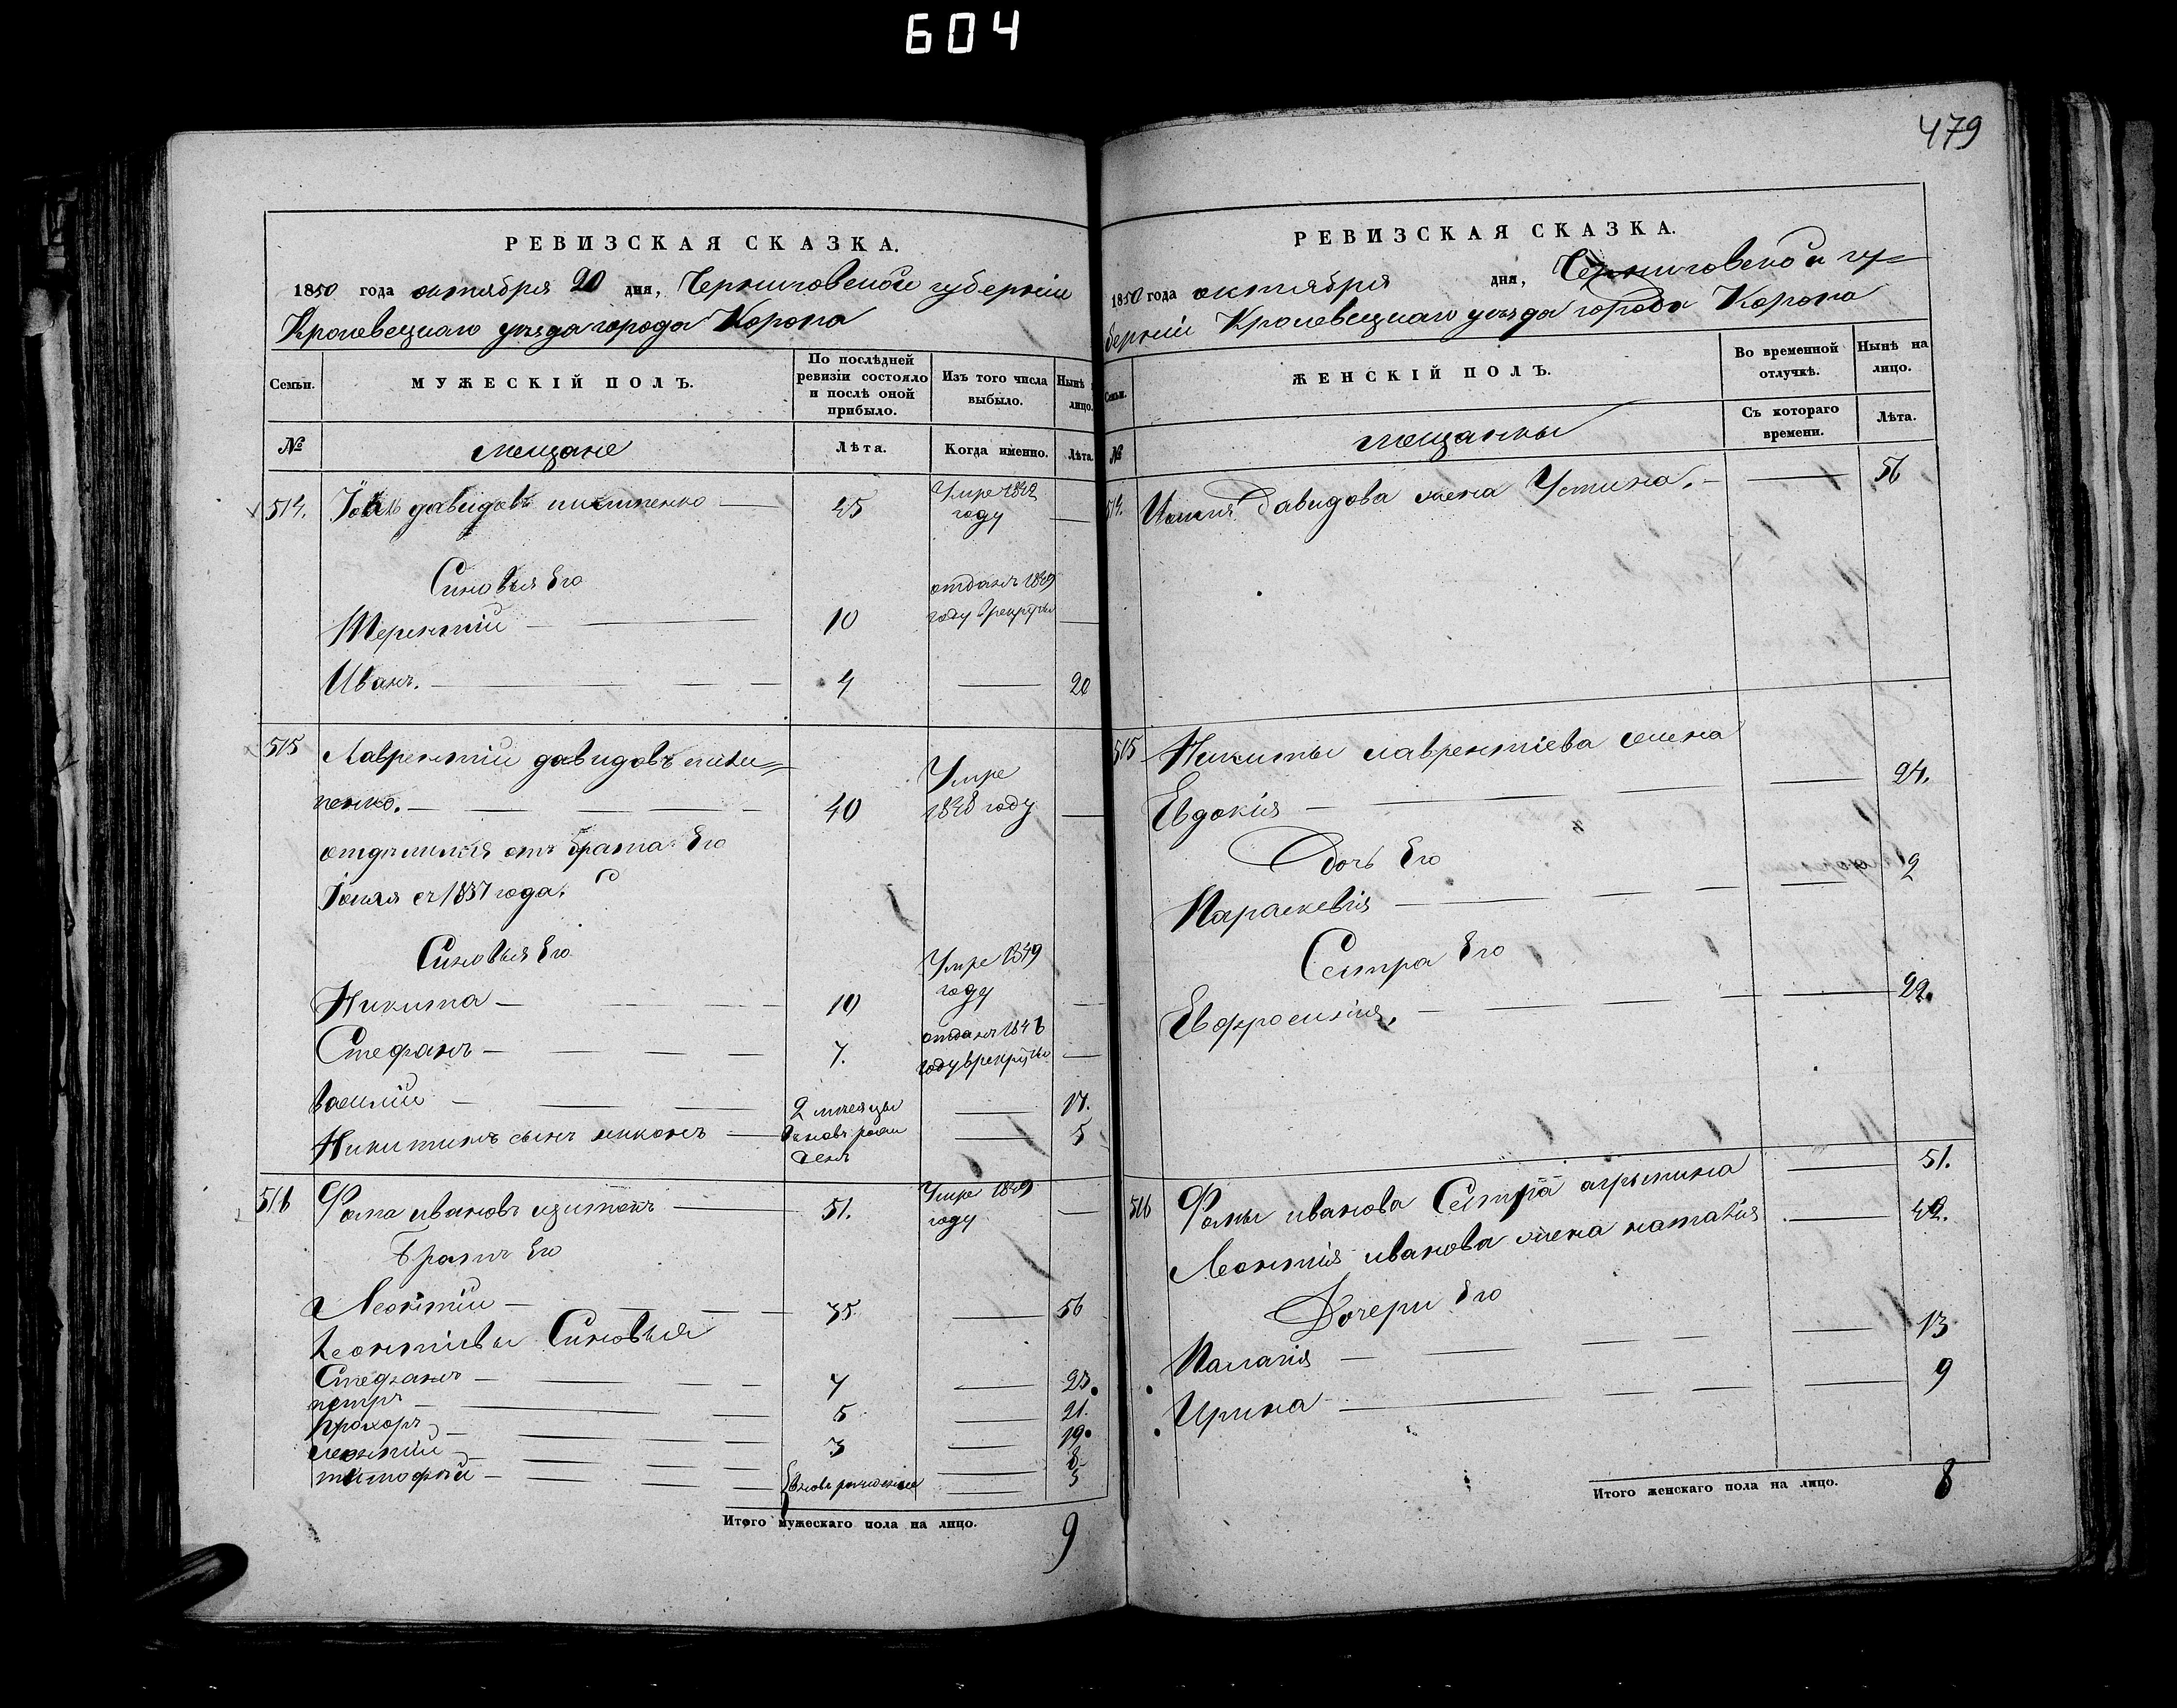 604
479
РЕВИЗСКАЯ СКАЗКА.
1850 года октября 20 дня, Черниговской губерніи
Кролевецкаго уезда города Коропа
Семьи.
МУЖЕСКІЙ ПОЛЪ.
По послѣдней ревизіи состояло и послѣ оной прибыло.
Изъ того числа выбыло.
Нынѣ лицо.
№
мещане
Лѣта.
Когда именно.
Лѣта.
514. давидовъ 45 Умре 1842 году
Синовья Его
Терентій 10 отданъ 1849 году врекруты
Иванъ. 4 20
515 Лаврентій давидовъ
пенко. 40 Умре 1848 году
отъ брата Его
с 1837 года.
Синовья Его
Никита 10 Умре 1849 году
Стефанъ 7. отданъ году врекруты
василій 2 месяцы 17.
Никитинъ сынъ вновь рожденъ 5
516 Фома ивановъ 51. Умре 1849 году
Братъ Его
Леонтій 35. 56
Леонтіевы Синовья
Стефанъ 7 23.
петръ 5 21.
Прохоръ 3 19.
леонтій 8
тимофей вновь рожденніе 5
Итого мужескаго пола на лицо. 9
РЕВИЗСКАЯ СКАЗКА.
1850 года октября дня, Черниговской гу-
берніи Кролевецкаго уезда города Коропа
Семьи.
ЖЕНСКІЙ ПОЛЪ.
Во временной отлучкѣ.
Нынѣ на лицо.
№
мещанки
Съ котораго времени.
Лѣта.
514. Давидова жена Устина. 56
515 Никиты лаврентіева жена
Евдокія 24.
Дочь Его
Параскевія 2
Сестра Его
Евфросинія. 22.
516 Фомы иванова Сестра агрипина 51.
Леонтія иванова жена наталія 42.
Дочери Его
Палагія 13
Ирина 9
Итого женскаго пола на лицо. 8